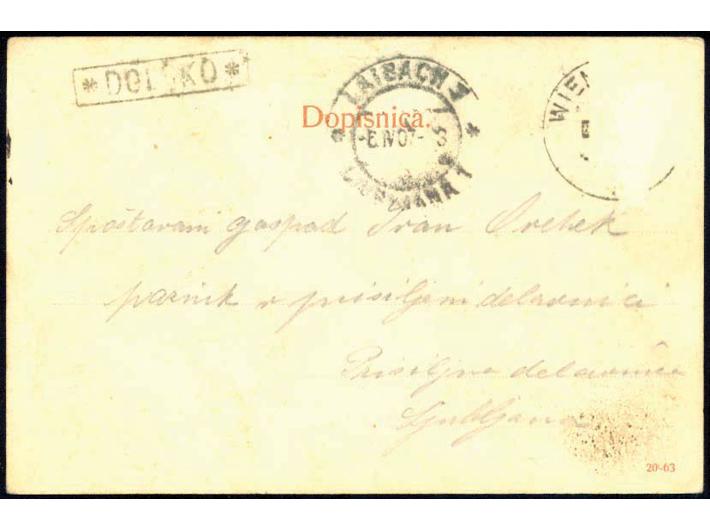 * DOLSKO *
LAIBACH 1
Dopisnica.
WIEN
-6 IV 07-
LJUBLJANA 1
Spoštovani gospod Ivan
paznik v prisiljeni delavnici
Prisiljna delavnica
Ljubljana
20-63